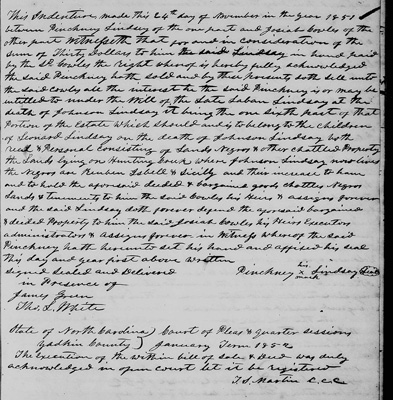 This Indenture made this 24th day of November in the year 1851
between Pinckney Lindsey of the one part and Josiah Cowles of the
other part Witnesseth that for and in consideration of the
sum of Thirty Dollars to him the said Lindsay in hand paid
by the sd Cowles the Right whereof is hereby fully acknowledged
the said Pinckney hath sold and by these presents doth sell unto
the said Cowles all the interest he the said Pinckney is or may be
intitled to under the Will of the Late Laban Lindsay at the
death of Johnson Lindsay it being the one sixth part of that
Portion of the Estate which should and is to belong to the children
of Leonard Lindsay on the death of Johnson Lindsay both
real & Personal Consisting of Lands Negros & other chattled Property
the Lands lying on Hunting Creek where Johnson Lindsay now lives
the Negros are Reuben Isbell & Sicily and their increase to have
and to hold the aforesaid deeded & bargained goods chattles Negros
Lands & tenements to him the said Cowles his Heirs & assigns forever
and the said Lindsay doth forever defend the aforesaid bargained
& deeded Property to him the said Josiah Cowles his Heirs Executors
administrators & Assigns forever in Witness whereof the said
Pinckney hath hereunto set his hand and affixed his seal
this day and year first above written
signed sealed and delivered Pinckney his x mark Lindsay Seal
in Presence of
James Green
Tho. L. White
State of North Carolina) Court of Pleas & Quarter sessions
Yadkin County) January Term 1852
The execution of the within bill of sale & Deed was duly
acknowledged in open court let it be registered
T. S. Martin C.C.C